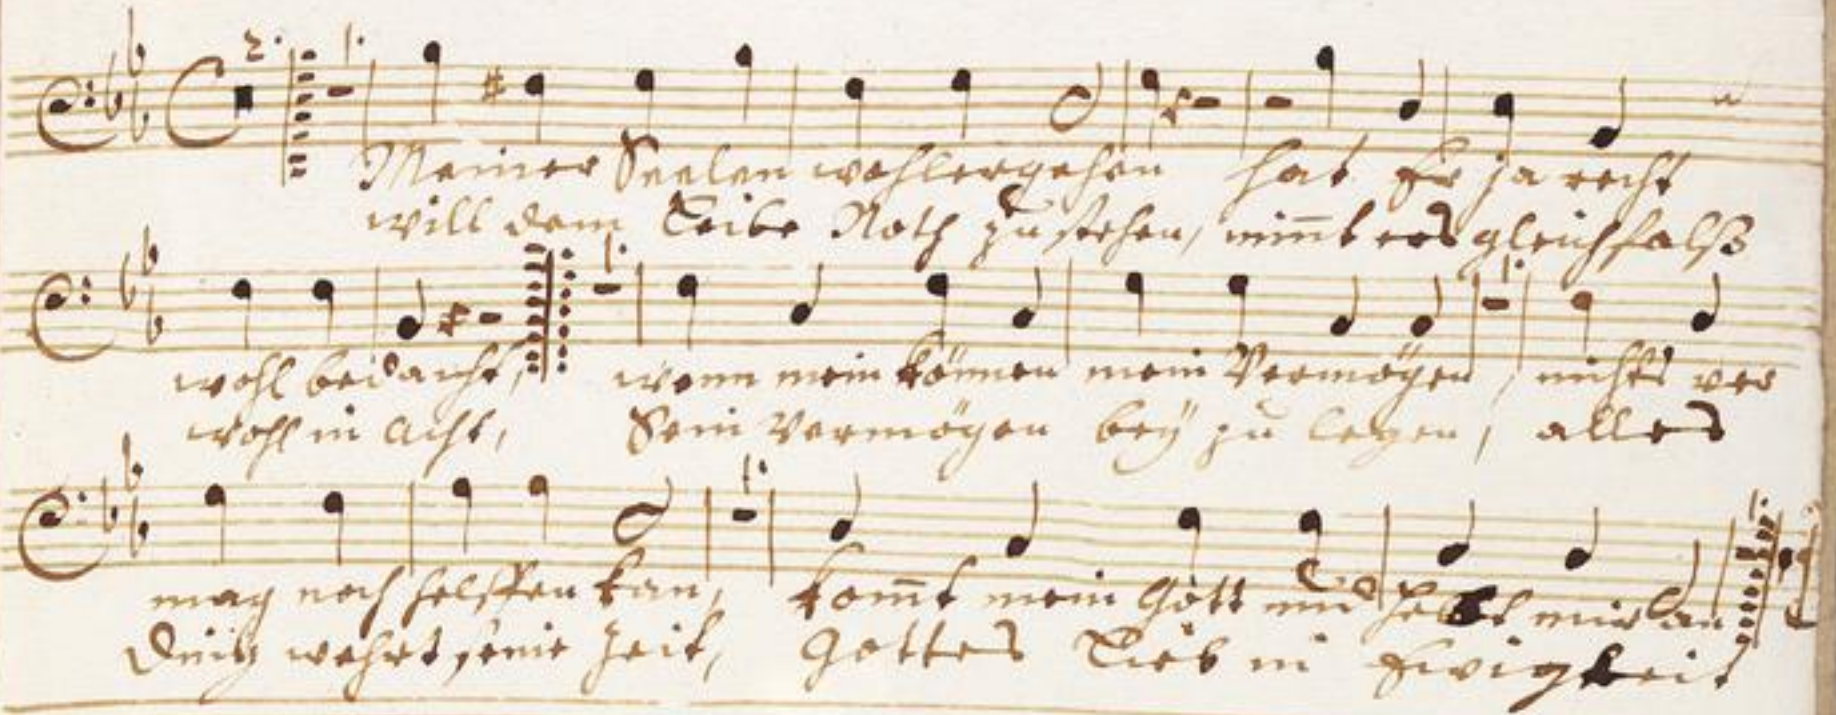 2.
1.
Meiner Seelen wohlergehen hat Er ja recht
will dem Leibe Noth zustehen, nim̄t ers gleichfalß
1.
1.
wohl bedacht, wenn mein können mein Vermögen, nichts ver
wohl in acht, Sein Vermögen beÿ zu legen, alles
1.
mag noch helffen kan, kom̄t mein Gott und hebt mir an
Ding wehrt seine Zeit, Gottes Lieb in Ewigkeit